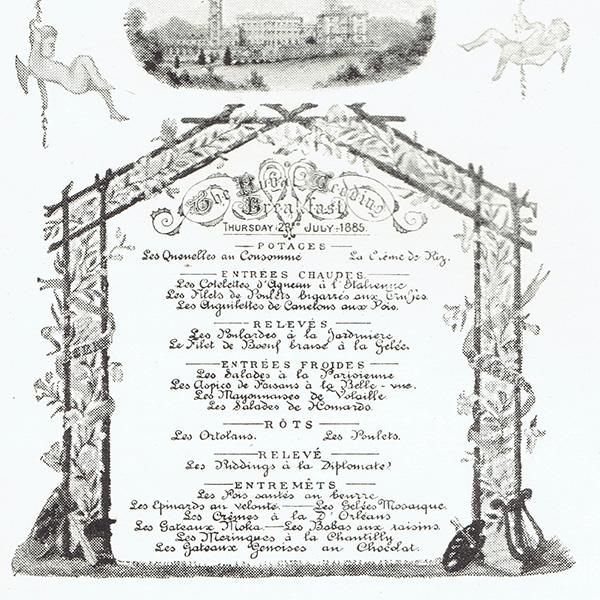 The Royal Wedding
Breakfast
THURSDAY 23RD JULY 1885.
POTAGES
Les Quenelles au Consommé La Crème de Riz.
ENTRÉES CHAUDES
Les Cotelettes d'Agneau à l'Italienne
Les Filets de Poulets bigarrés aux Truffes.
Les Aiguilettes de Canetons aux Pois.
RELEVÉS
Les Poulardes à la Jardinière
Le Filet de Boeuf braisé à la Gelée.
ENTRÉES FROIDES
Les Salades à la Parisienne
Les Aspics de Faisans à la Belle-vue.
Les Mayonnaises de Volaille
Les Salades de Homards.
RÔTS
Les Ortolans. Les Poulets.
RELEVÉ
Les Puddings à la Diplomate
ENTREMÊTS
Les Pois sautés au beurre
Les Epinards au velouté — Les Gelées Mosaïque.
Les Crêmes à la D'Orléans
Les Gateaux Moka — Les Babas aux raisins.
Les Meringues à la Chantilly
Les Gateaux Genoises au Chocolat.